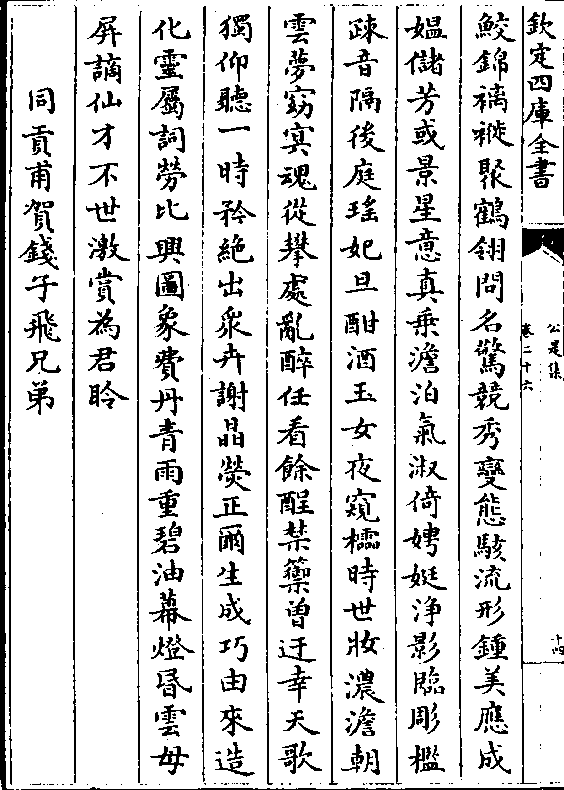 欽定四庫全書
公是集
卷二十六
十四
鮫錦襹褷聚鶴翎問名驚競秀變態駭流形鍾美應成
媼儲芳或景星意真乗澹泊氣淑倚娉娗浄影臨彫檻
疎音隔後庭瑤妃旦酣酒玉女夜窺櫺時世妝濃澹朝
雲夢窈㝠魂從攀處亂醉任看餘醒禁籞曽迂幸天歌
獨仰聽一時矜絶出衆卉謝晶熒正爾生成巧由來造
化靈屬詞勞比興圖象費丹青雨重碧油幕燈昬雲母
屏謫仙才不世激賞為君聆
同貢甫賀錢子飛兄弟